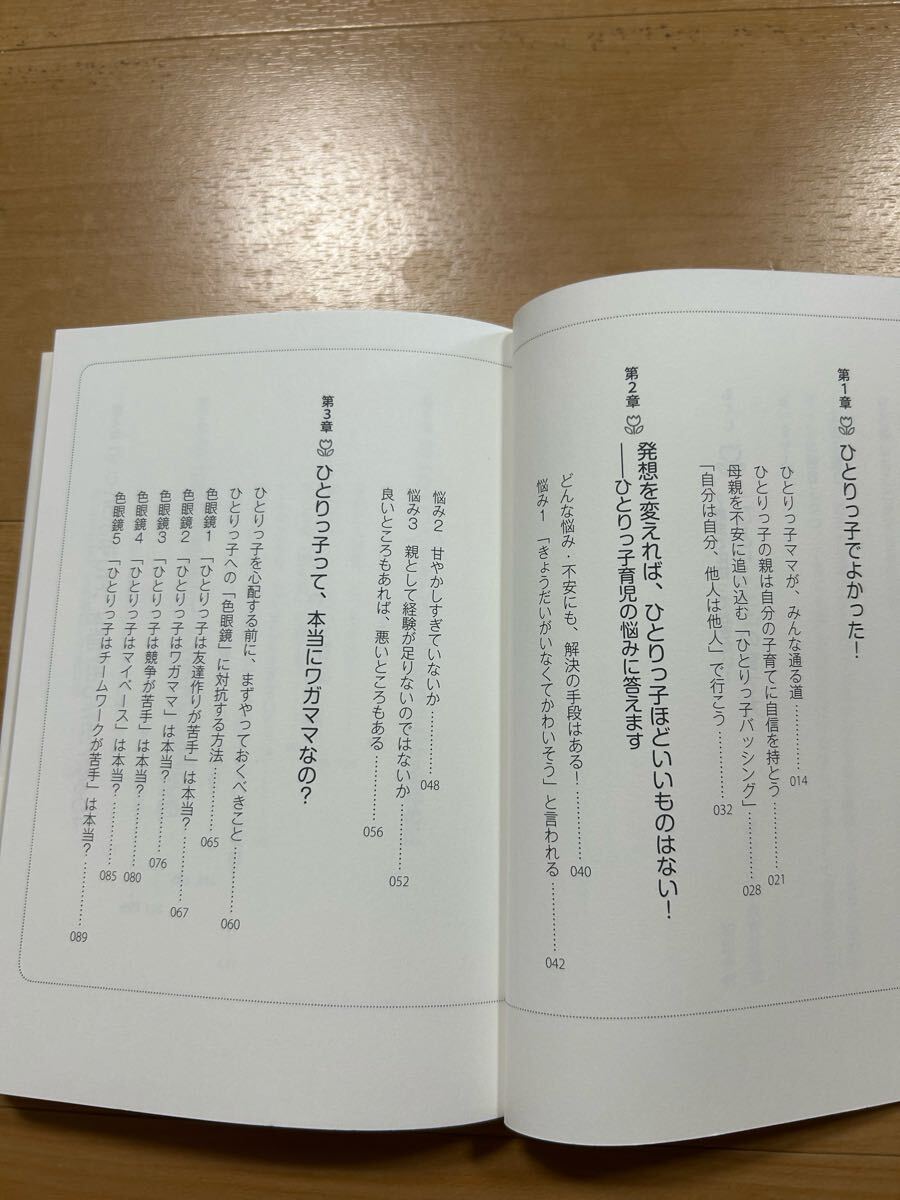 第1章 ひとりっ子でよかった！
ひとりっ子ママが、みんな通る道 ………… 014
ひとりっ子の親は自分の子育てに自信を持とう ………… 021
母親を不安に追い込む「ひとりっ子バッシング」 ………… 028
「自分は自分、他人は他人」で行こう ………… 032
第2章 発想を変えれば、ひとりっ子ほどいいものはない！
――ひとりっ子育児の悩みに答えます
どんな悩み・不安にも、解決の手段はある！ ………… 040
悩み1 「きょうだいがいなくてかわいそう」と言われる ………… 042
悩み2 甘やかしすぎていないか ………… 048
悩み3 親として経験が足りないのではないか ………… 052
良いところもあれば、悪いところもある ………… 056
第3章 ひとりっ子って、本当にワガママなの？
ひとりっ子を心配する前に、まずやっておくべきこと ………… 060
ひとりっ子への「色眼鏡」に対抗する方法 ………… 065
色眼鏡1 「ひとりっ子は友達作りが苦手」は本当？ ………… 067
色眼鏡2 「ひとりっ子はワガママ」は本当？ ………… 076
色眼鏡3 「ひとりっ子は競争が苦手」は本当？ ………… 080
色眼鏡4 「ひとりっ子はマイペース」は本当？ ………… 085
色眼鏡5 「ひとりっ子はチームワークが苦手」は本当？ ………… 089